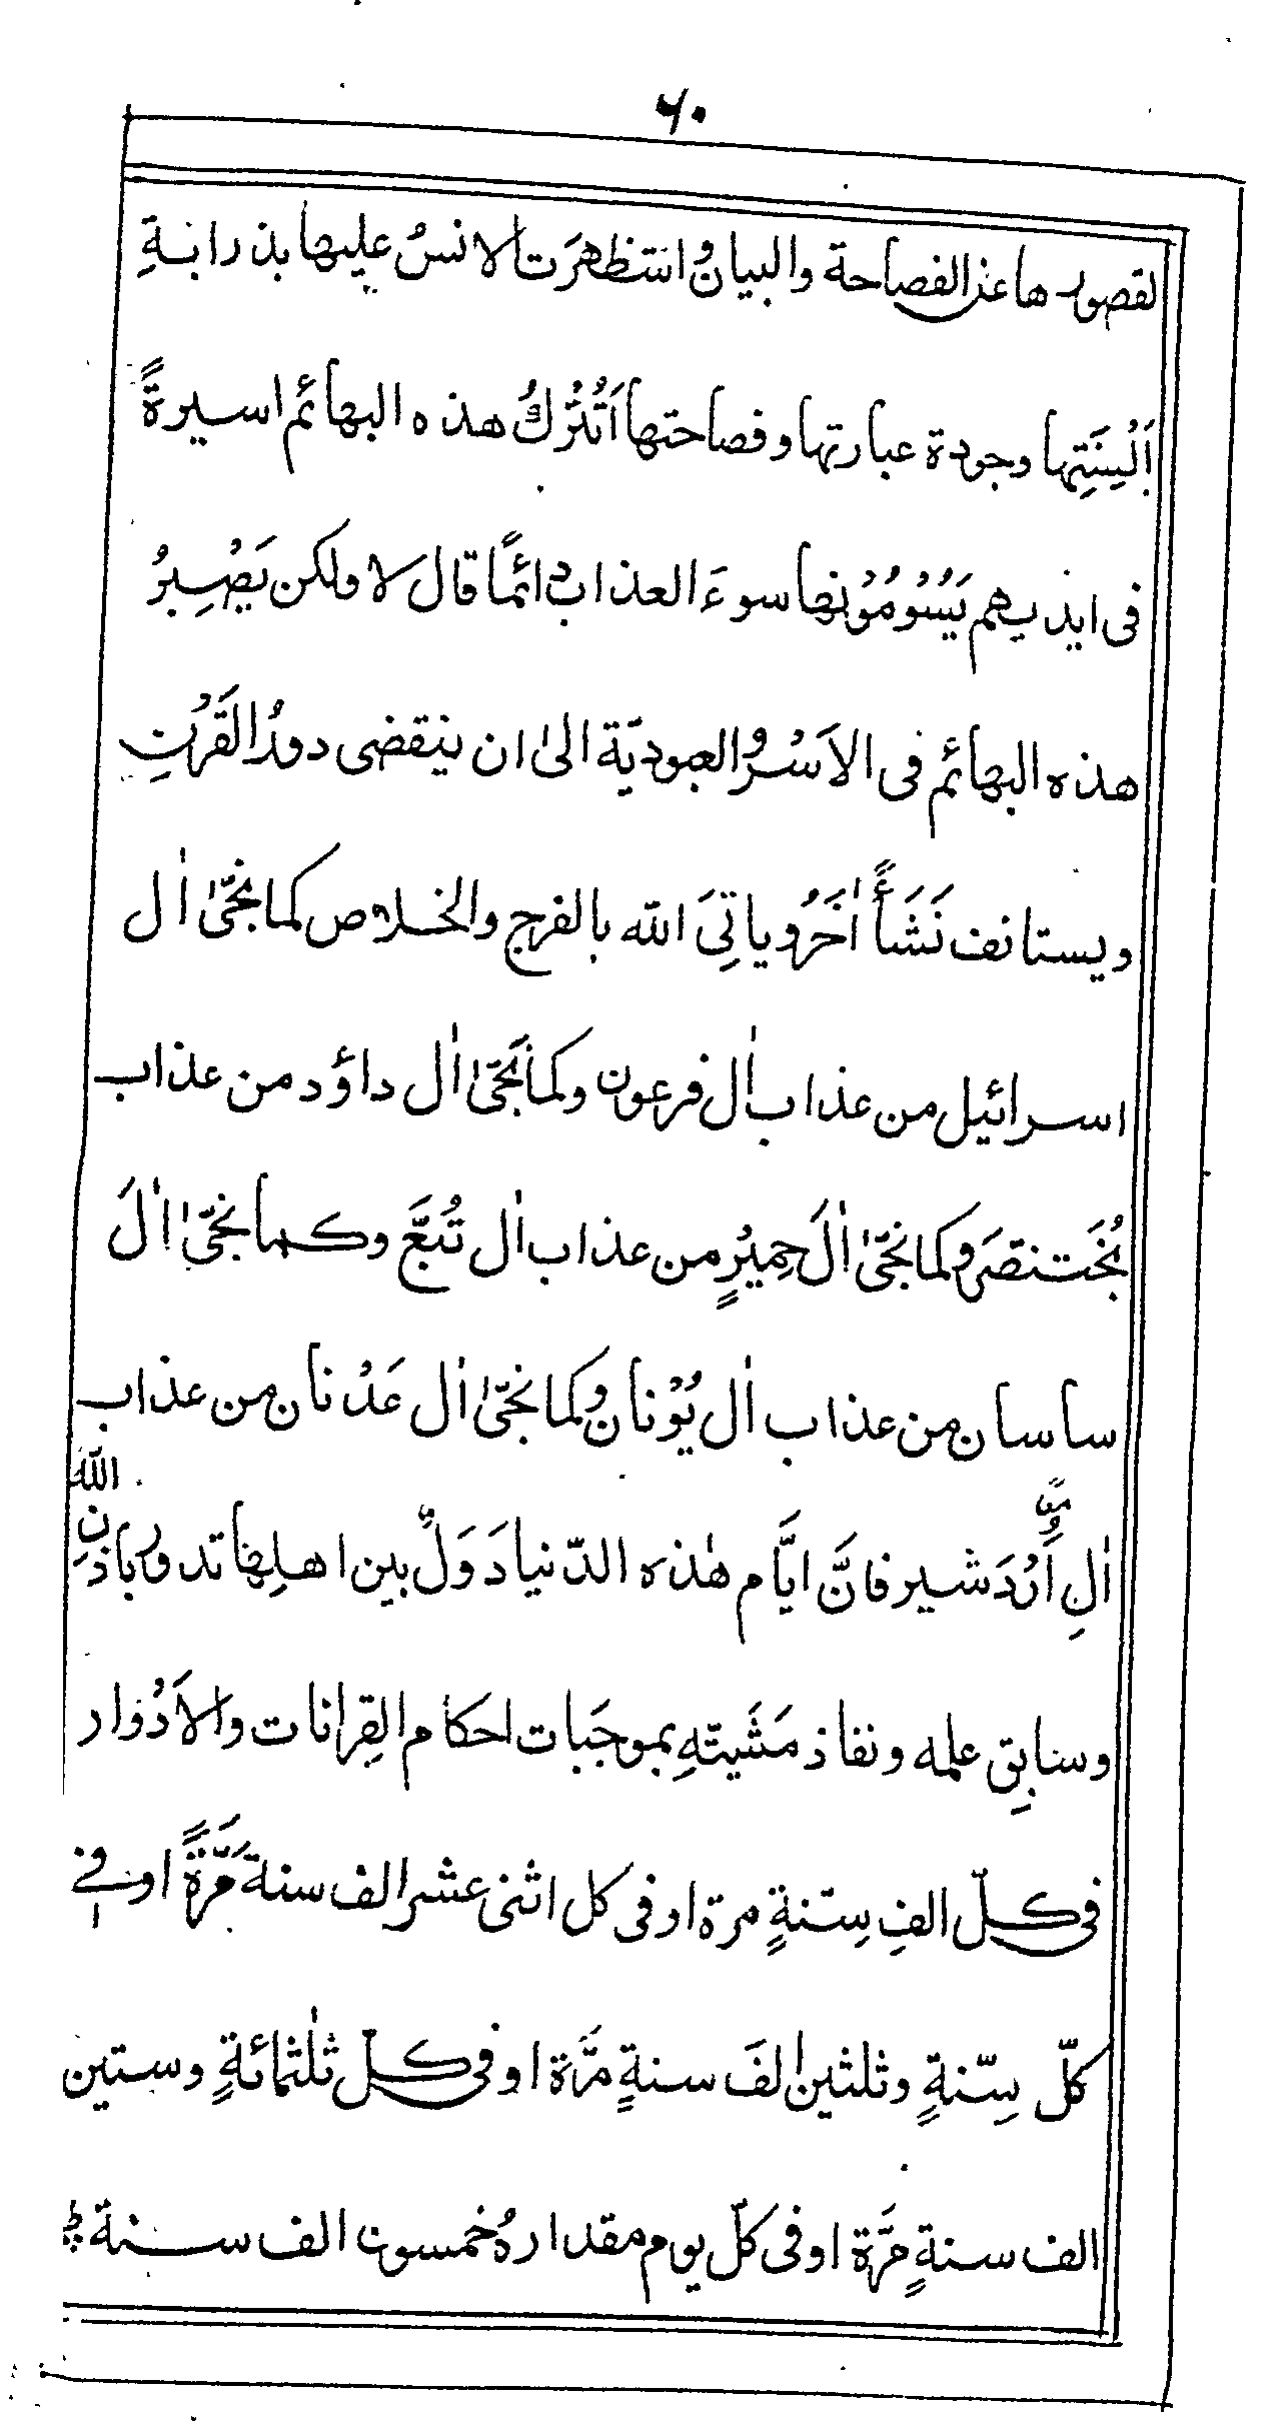 ٦٠
لقصورها عن الفصاحة والبيان واستظهرت الانسُ عليها بذرابةِ
اَلْسِنَتِها وجودة عبارتها وفصاحتها اَتُتْرَكُ هذه البهائم اسيرةً
فى ايديهم يَسُوْمُوْنها سوءَ العذاب دائمًا قال لا ولكن يَصْبِرُ
هذه البهائم فى الاَسْرِ والعبوديّة الىٰ ان ينقضى دورُ القَرْنِ
ويستانف نَشَأً اٰخَرُ وياتِىَ الله بالفرج والخلاص كما نجّىٰ اٰل
اسرائيل من عذاب اٰل فرعون وكما نَجّىٰ اٰل داؤد من عذاب
بُخَتنصَر وكما نجّىٰ اٰلَ حِمِيْرٍ من عذاب اٰل تُبَّعَ وكما نجّىٰ اٰلَ
ساسان من عذاب اٰل يُوْنان وكما نجّىٰ اٰل عَدْنان من عذاب
اٰلِ اَرْدَشير فانَّ ايَّام هٰذه الدّنيا دَوَلٌ بين اهلِها تدور باذنِ اللّٰه
وسابقِ علمه ونفاذ مَشيتهِ بموجَبات احكام القِرانات والاَدْوار
فى كلّ الفِ سَنةٍ مرة او فى كل اثنى عشر الف سنة مَرَّةً او فى
كلّ سِتّةٍ وثلثين الفَ سنةٍ مَرَّة او فى كلّ ثلٰثمائةٍ وستين
الف سنةٍ مَرَّة او فى كلّ يوم مقدارهُ خمسون الف سنة